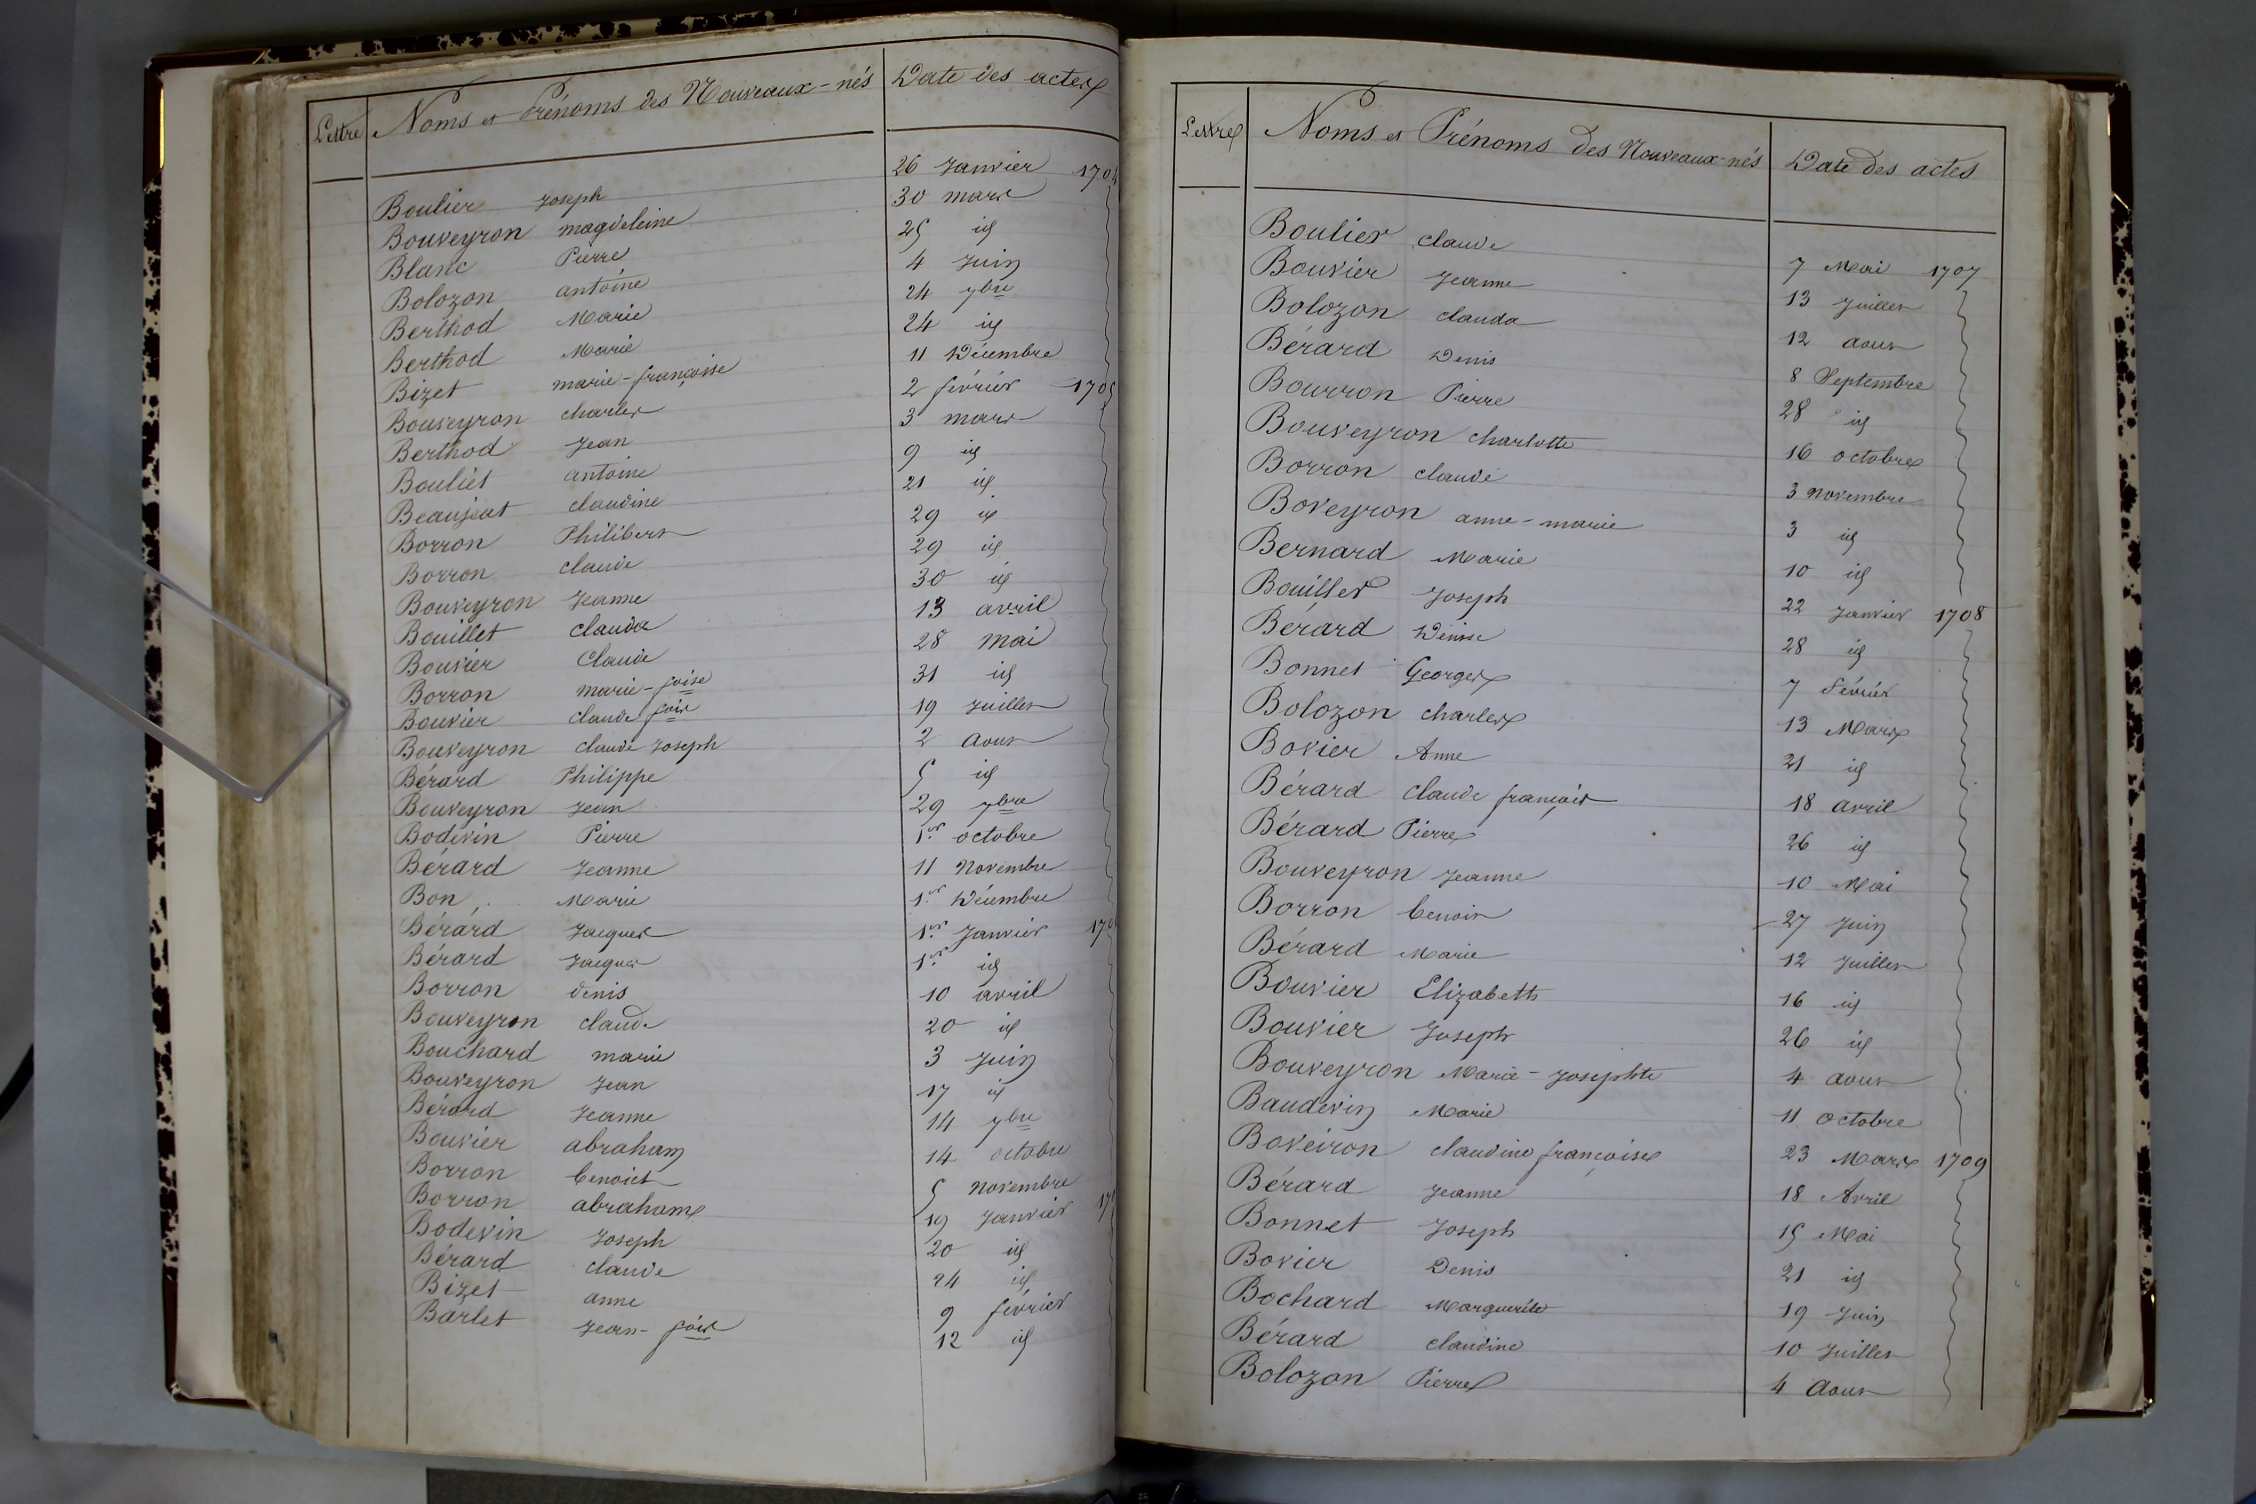 Lettre Noms et Prénoms des Nouveaux-nés Date des actes
Boulier Joseph 26 Janvier 1704
Bouveyron magdeleine 30 mars
Blanc Pierre 25 id
Bolozon antoine 4 Juin
Berthod Marie 24 7bre
Berthod Marie 24 id
Bizet marie-françoise 11 Décembre
Bouveyron charles 2 février 1705
Berthod Jean 3 mars
Bouliet antoine 9 id
Beaujeat claudine 21 id
Borron Philibert 29 id
Borron claude 29 id
Bouveyron Jeanne 30 id
Bouillet clauda 13 avril
Bouvier Claude 28 mai
Borron marie-foise 31 id
Bouvier claude fois 19 Juillet
Bouveyron claude Joseph 2 Aout
Bérard Philippe 5 id
Bouveyron Jean 29 7bre
Bodevin Pierre 1er octobre
Bérard Jeanne 11 Novembre
Bon Marie 1er Décembre
Bérard Jacques 1er Janvier 170
Bérard Jacques 1er id
Borron denis 10 avril
Bouveyron claude 20 id
Bouchard marie 3 Juin
Bouveyron Jean 17 id
Bérard Jeanne 14 7bre
Bouvier abraham 14 octobre
Borron benoict 5 Novembre
Borron abraham 19 Janvier 17
Bodevin Joseph 20 id
Bérard claude 24 id
Bizet anne 9 février
Barlet Jean-fois 12 id
Lettre Noms et Prénoms des Nouveaux-nés Date des actes
Boulier claude 7 Mai 1707
Bouvier Jeanne 13 Juillet
Bolozon clauda 12 aout
Bérard Denis 8 Septembre
Bourron Pierre 28 id
Bouveyron charlotte 16 octobre
Borron claude 3 Novembre
Boveyron anne-marie 3 id
Bernard Marie 10 id
Bouillet Joseph 22 Janvier 1708
Bérard Denise 28 id
Bonnet Georges 7 Février
Bolozon charles 13 Mars
Bovier Anne 21 id
Bérard claude françois 18 avril
Bérard Pierre 26 id
Bouveyron Jeanne 10 Mai
Borron benoit 27 Juin
Bérard Marie 12 Juillet
Bouvier Elizabeth 16 id
Bouvier Joseph 26 id
Bouveyron Marie-Josephte 4 aout
Baudevin Marie 11 Octobre
Boveiron claudine françoise 23 Mars 1709
Bérard Jeanne 18 Avril
Bonnet Joseph 15 Mai
Bovier Denis 21 id
Bochard Marguerite 19 Juin
Bérard claudine 10 Juillet
Bolozon Pierre 4 Aout